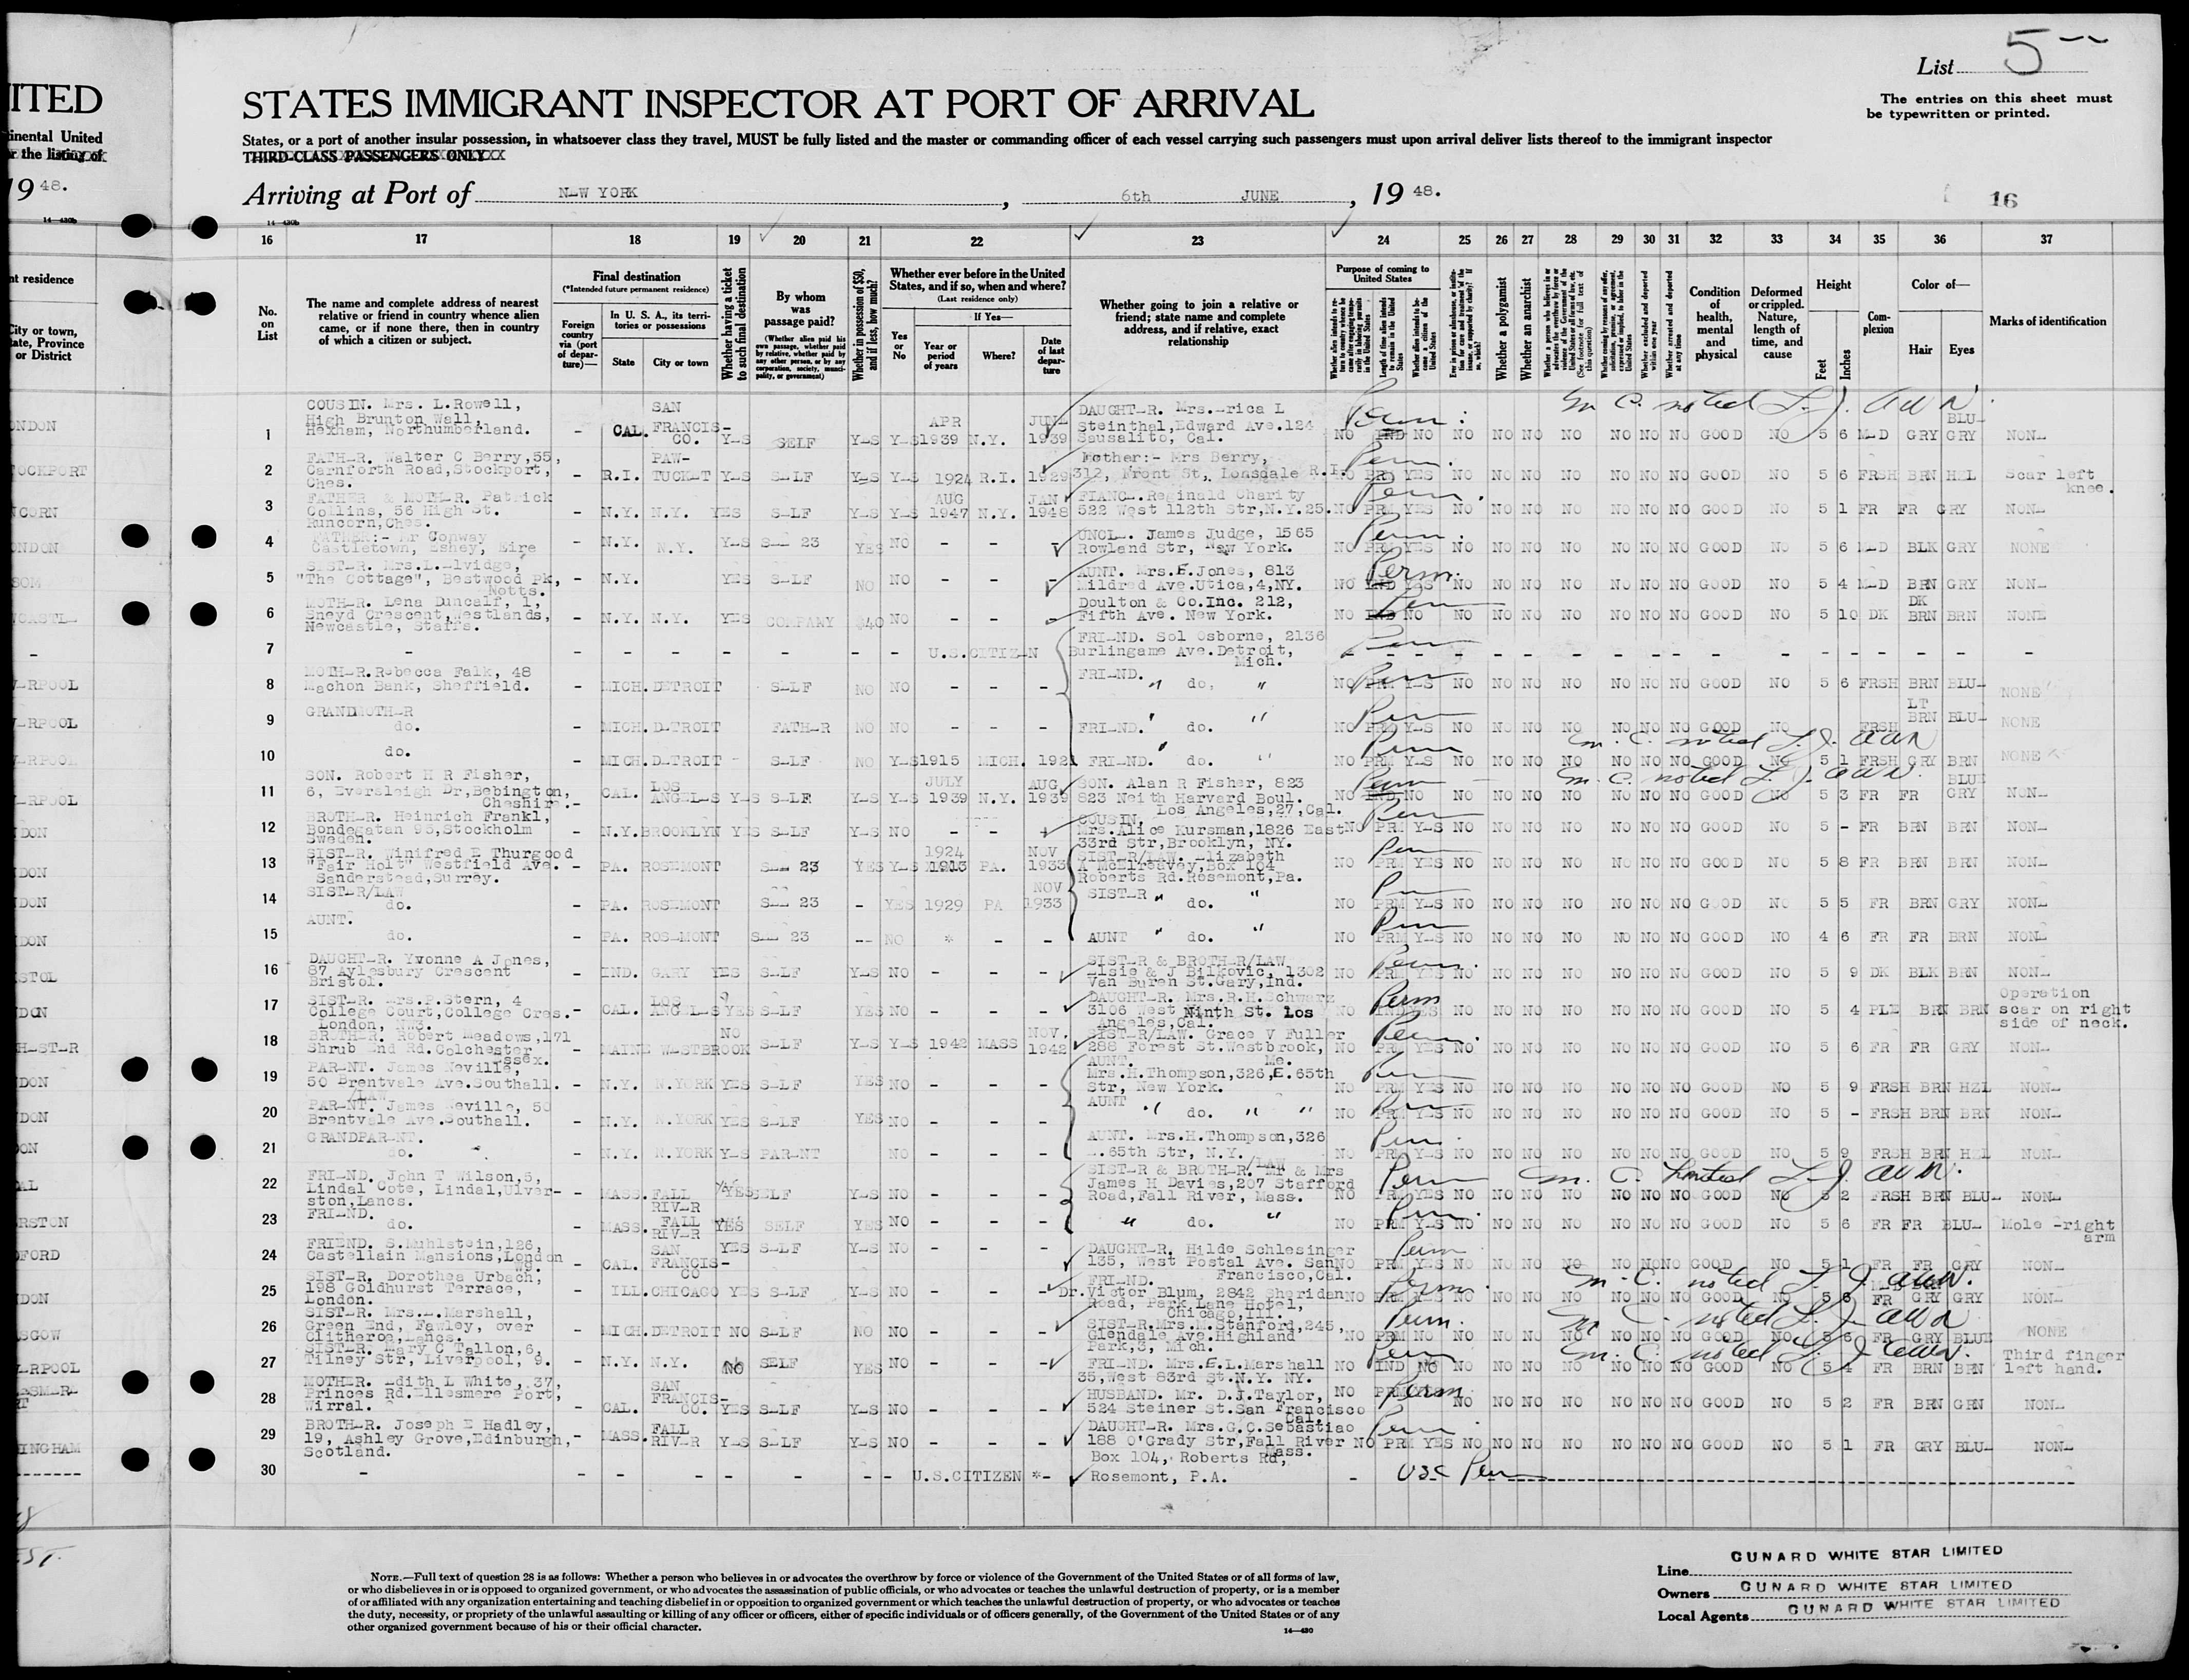 ITED
tinental United
r the listing of
19 48.
14-430b
nt residence
City or town,
ate, Province
or District
List 5
STATES IMMIGRANT INSPECTOR AT PORT OF ARRIVAL
The entries on this sheet must
be typewritten or printed.
States, or a port of another insular possession, in whatsoever class they travel, MUST be fully listed and the master or commanding officer of each vessel carrying such passengers must upon arrival deliver lists thereof to the immigrant inspector
THIRD-CLASS PASSENGERS ONLY
Arriving at Port of NEW YORK, 6th JUNE, 19 48.
16
14-430b
16 17 18 19 20 21 22 23 24 25 26 27 28 29 30 31 32 33 34 35 36 37
No. on List
The name and complete address of nearest relative or friend in country whence alien came, or if none there, then in country of which a citizen or subject.
Final destination
(*Intended future permanent residence)
Foreign country via (port of departure)—
In U. S. A., its territories or possessions
State City or town
Whether having a ticket to such final destination
By whom was passage paid?
(Whether alien paid his own passage, whether paid by relative, whether paid by any other person, or by any corporation, society, municipality, or government)
Whether in possession of $50, and if less, how much?
Whether ever before in the United States, and if so, when and where?
(Last residence only)
If Yes—
Yes or No
Year or period of years
Where?
Date of last departure
Whether going to join a relative or friend; state name and complete address, and if relative, exact relationship
Purpose of coming to United States
Whether a polygamist
Whether an anarchist
Condition of health, mental and physical
Deformed or crippled. Nature, length of time, and cause
Height
Feet Inches
Complexion
Color of—
Hair Eyes
Marks of identification
1 COUSIN. Mrs. L.Rowell, High Brunton Wall, Hexham, Northumberland. - CAL. SAN FRANCISCO. YES SELF YES YES APR 1939 N.Y. JUNE 1939 DAUGHTER. Mrs.Erica L Steinthal,Edward Ave.124 Sausalito, Cal. NO IND NO NO NO NO NO NO NO NO GOOD NO 5 6 MED GRY BLUE GRY NONE
Perm. M. C. noted
2 FATHER. Walter C Berry,55, Carnforth Road,Stockport, Ches. - R.I. PAWTUCKET YES SELF YES YES 1924 R.I. 1929 Mother:- Mrs Berry, 312, Front St, Lonsdale R.I. NO PRM YES NO NO NO NO NO NO NO GOOD NO 5 6 FRSH BRN HZL Scar left knee.
Perm.
3 FATHER & MOTHER. Patrick Collins, 56 High St. Runcorn,Ches. - N.Y. N.Y. YES SELF YES YES AUG 1947 N.Y. JAN 1948 FIANCE.Reginald Charity 522 West 112th Str,N.Y.25. NO PRM YES NO NO NO NO NO NO NO GOOD NO 5 1 FR FR GRY NONE
Perm.
4 FATHER:- Mr Conway Castletown, Eskey, Eire - N.Y. N.Y. YES SEE 23 YES NO - - - UNCLE. James Judge, 1565 Rowland Str, New York. NO PRM YES NO NO NO NO NO NO NO GOOD NO 5 6 MED BLK GRY NONE
Perm.
5 SISTER. Mrs.L.Elvidge, "The Cottage", Bestwood Pk, Notts. - N.Y. YES SELF NO NO - - - AUNT. Mrs.E.Jones, 813 Mildred Ave.Utica,4,NY. NO IND YES NO NO NO NO NO NO NO GOOD NO 5 4 MED BRN GRY NONE
Perm.
6 MOTHER. Lena Duncalf, 1, Sneyd Crescent,Westlands, Newcastle, Staffs. - N.Y. N.Y. YES COMPANY $40 NO - - - Doulton & Co.Inc. 212, Fifth Ave. New York. NO IND NO NO NO NO NO NO NO NO GOOD NO 5 10 DK DK BRN BRN NONE
Perm
7 - - - - - - - - U.S.CITIZEN FRIEND. Sol Osborne, 2136 Burlingame Ave.Detroit, Mich. - - - -
Perm
8 MOTHER.Rebecca Falk, 48 Machon Bank, Sheffield. - MICH.DETROIT SELF NO NO - - - FRIEND. " do. " NO PRM YES NO NO NO NO NO NO NO GOOD NO 5 6 FRSH BRN BLUE NONE
Perm
9 GRANDMOTHER do. - MICH.DETROIT FATHER NO NO - - - FRIEND. " do. " NO PRM YES NO NO NO NO NO NO NO GOOD NO FRSH LT BRN BLUE NONE
Perm
10 do. - MICH.DETROIT - SELF NO YES 1915 MICH. 1921 FRIEND. " do. " NO PRM YES NO NO NO NO NO NO NO GOOD NO 5 1 FRSH GRY BRN NONE
Perm M. C. noted
11 SON. Robert H R Fisher, 6, Eversleigh Dr,Bebington, Cheshire.- CAL. LOS ANGELES YES SELF YES YES JULY 1939 N.Y. AUG 1939 SON. Alan R Fisher, 823 823 Neith Harvard Boul. Los Angeles,27,Cal. NO IND NO NO NO NO NO NO NO NO GOOD NO 5 3 FR FR BLUE GRY NONE
Perm M. C. noted
12 BROTHER. Heinrich Frankl, Bondegatan 93,Stockholm Sweden. - N.Y.BROOKLYN YES SELF YES NO - - - COUSIN. Mrs.Alice Kursman,1826 East 33rd Str,Brooklyn, NY. NO PRM YES NO NO NO NO NO NO NO GOOD NO 5 - FR BRN BRN NONE
Perm
13 SISTER. Winifred E Thurgood "Fair Holt" Westfield Ave. Sanderstead,Surrey. - PA. ROSEMONT SEE 23 YES YES 1924 PA. NOV 1933 SISTER/LAW. Elizabeth A McElreevey,Box 104 Roberts Rd.Rosemont,Pa. NO PRM YES NO NO NO NO NO NO NO GOOD NO 5 8 FR BRN BRN NONE
Perm
14 SISTER/LAW do. - PA. ROSEMONT SEE 23 - YES 1929 PA NOV 1933 SISTER " do. " NO PRM YES NO NO NO NO NO NO NO GOOD NO 5 5 FR BRN GRY NONE
Perm
15 AUNT. do. - PA. ROSEMONT SEE 23 -- NO * - - AUNT " do. " NO PRM YES NO NO NO NO NO NO NO GOOD NO 4 6 FR FR BRN NONE
Perm
16 DAUGHTER. Yvonne A Jones, 87 Aylesbury Crescent Bristol. - IND. GARY YES SELF YES NO - - - SISTER & BROTHER/LAW Elsie & J Bilkovic, 1302 Van Buren St.Gary,Ind. NO PRM YES NO NO NO NO NO NO NO GOOD NO 5 9 DK BLK BRN NONE
Perm.
17 SISTER. Mrs.P.Stern, 4 College Court,College Cres. London, NW3. - CAL. LOS ANGELES YES SELF YES NO - - - DAUGHTER. Mrs.R.H.Schwarz 3106 West Ninth St. Los Angeles,Cal. NO IND YES NO NO NO NO NO NO NO GOOD NO 5 4 PLE BRN BRN Operation scar on right side of neck.
Perm
18 BROTHER. Robert Meadows,171 Shrub End Rd.Colchester Essex. - MAINE WESTBROOK NO SELF YES YES 1942 MASS NOV. 1942 SISTER/LAW. Grace V Fuller 288 Forest St.Westbrook, Me. NO PRM YES NO NO NO NO NO NO NO GOOD NO 5 6 FR FR GRY NONE
Perm.
19 PARENT. James Neville, 50 Brentvale Ave.Southall. - N.Y. N.YORK YES SELF YES NO - - - AUNT. Mrs.H.Thompson,326,E.65th Str, New York. NO PRM YES NO NO NO NO NO NO NO GOOD NO 5 9 FRSH BRN HZL NONE
Perm
20 PARENT/LAW. James Neville, 50 Brentvale Ave.Southall. - N.Y. N.YORK YES SELF YES NO - - - AUNT " do. " " NO PRM YES NO NO NO NO NO NO NO GOOD NO 5 - FRSH BRN BRN NONE
Perm
21 GRANDPARENT. do. - N.Y. N.YORK YES PARENT NO - - - AUNT. Mrs.H.Thompson,326 E.65th Str, N.Y. NO PRM YES NO NO NO NO NO NO NO GOOD NO 5 9 FRSH BRN HZL NONE
Perm.
22 FRIEND. John T Wilson,5, Lindal Cote, Lindal,Ulverston,Lancs. - MASS. FALL RIVER YES SELF YES NO - - - SISTER & BROTHER/LAW. Mr & Mrs James H Davies,207 Stafford Road,Fall River, Mass. NO PRM YES NO NO NO NO NO NO NO GOOD NO 5 2 FRSH BRN BLUE NONE
Perm M. C. noted
23 FRIEND. do. - MASS. FALL RIVER YES SELF YES NO - - - " do. " NO PRM YES NO NO NO NO NO NO NO GOOD NO 5 6 FR FR BLUE Mole -right arm
Perm.
24 FRIEND. S.Muhlstein,126, Castellain Mansions,London W9. - CAL. SAN FRANCISCO YES SELF YES NO - - - DAUGHTER. Hilde Schlesinger 135, West Postal Ave. San Francisco,Cal. NO PRM YES NO NO NO NO NO NO NO GOOD NO 5 1 FR FR GRY NONE
Perm
25 SISTER. Dorothea Urbach, 198 Goldhurst Terrace, London. - ILL.CHICAGO YES SELF YES NO - - - FRIEND. Dr.Victor Blum, 2842 Sheridan Road, Park Lane Hotel, Chicago,Ill. NO PRM YES NO NO NO NO NO NO NO GOOD NO 5 6 MED FR GRY GRY NONE
Perm. M. C. noted
26 SISTER. Mrs.E.Marshall, Green End, Fawley, over Clitheroe,Lancs. - MICH.DETROIT NO SELF NO NO - - - SISTER.Mrs.M.Stanford,245, Glendale Ave.Highland Park,3, Mich. NO PRM NO NO NO NO NO NO NO NO GOOD NO 5 6 FR GRY BLUE NONE
Perm. M. C. noted
27 SISTER. Mary C Tallon,6, Tilney Str, Liverpool, 9. - N.Y. N.Y. NO SELF YES NO - - - FRIEND. Mrs.E.L.Marshall 35,West 83rd St.N.Y. NY. NO IND NO NO NO NO NO NO NO NO GOOD NO 5 4 FR BRN BRN Third finger left hand.
Perm M. C. noted
28 MOTHER. Edith L White, 37, Princes Rd.Ellesmere Port, Wirral. - CAL. SAN FRANCISCO. YES SELF YES NO - - - HUSBAND. Mr. D.J.Taylor, 524 Steiner St.San Francisco Cal. NO PRM NO NO NO NO NO NO NO GOOD NO 5 2 FR BRN GRN NONE
Perm
29 BROTHER. Joseph E Hadley, 19, Ashley Grove,Edinburgh, Scotland. - MASS. FALL RIVER YES SELF YES NO - - - DAUGHTER. Mrs.G.C.Sebastiao 188 O'Grady Str,Fall River Mass. NO PRM YES NO NO NO NO NO NO NO GOOD NO 5 1 FR GRY BLUE NONE
Perm
30 - - - - - - - - U.S.CITIZEN *- Box 104, Roberts Rd, Rosemont, P.A. - USC Perm
NOTE.—Full text of question 28 is as follows: Whether a person who believes in or advocates the overthrow by force or violence of the Government of the United States or of all forms of law,
or who disbelieves in or is opposed to organized government, or who advocates the assassination of public officials, or who advocates or teaches the unlawful destruction of property, or is a member
of or affiliated with any organization entertaining and teaching disbelief in or opposition to organized government or which teaches the unlawful destruction of property, or who advocates or teaches
the duty, necessity, or propriety of the unlawful assaulting or killing of any officer or officers, either of specific individuals or of officers generally, of the Government of the United States or of any
other organized government because of his or their official character.
14-430
Line CUNARD WHITE STAR LIMITED
Owners CUNARD WHITE STAR LIMITED
Local Agents CUNARD WHITE STAR LIMITED